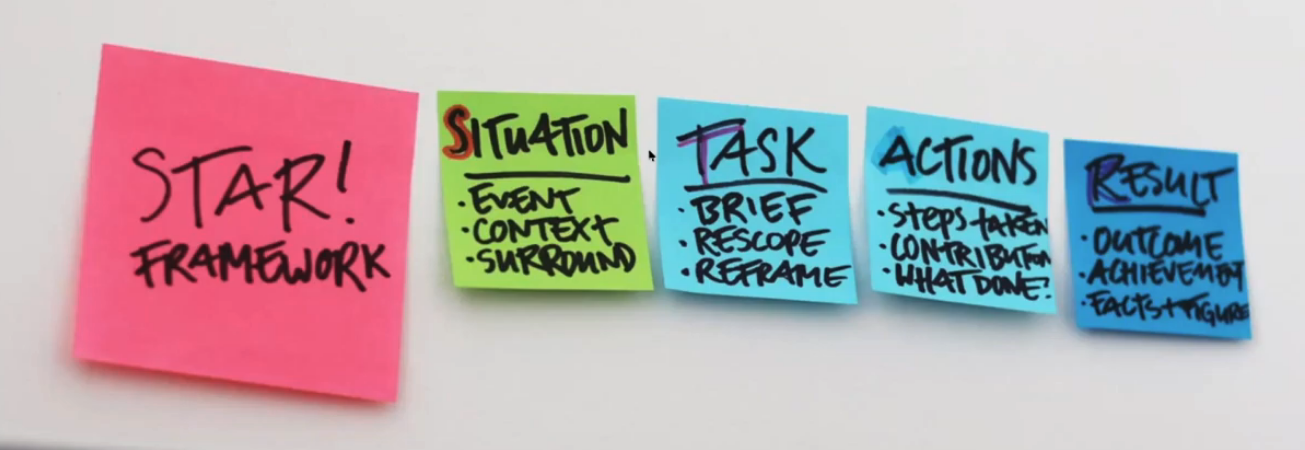 STAR!
FRAMEWORK
SITUATION
• EVENT
• CONTEXT
• SURROUND
TASK
• BRIEF
• RESCOPE
• REFRAME
ACTIONS
• STEPS TAKEN
• CONTRIBUTION
• WHAT DONE?
RESULT
• OUTCOME
• ACHIEVEMENT
• FACTS + FIGURE